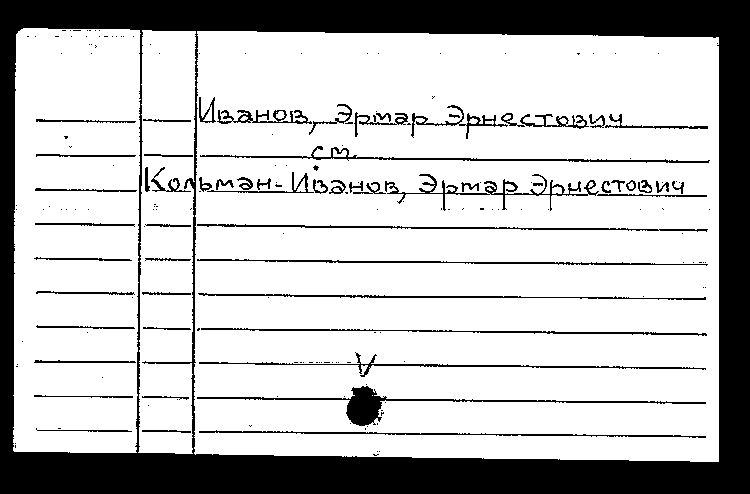 Иванов, Эрмар Эрнестович
см.
Кольман-Иванов, Эрмар Эрнестович
V